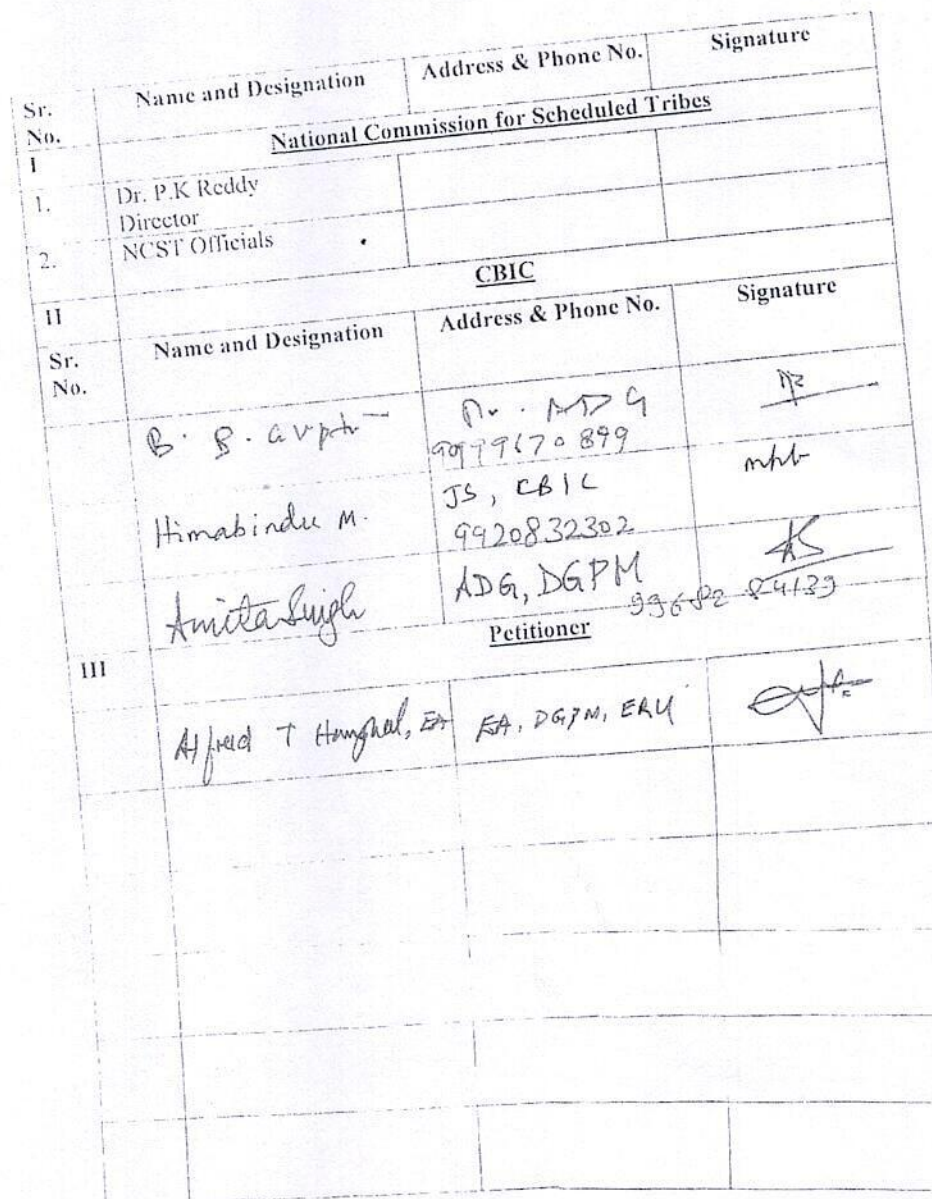 Sr. No. Name and Designation Address & Phone No. Signature
I National Commission for Scheduled Tribes
1. Dr. P.K Reddy
Director
2. NCST Officials
II CBIC
Sr. No. Name and Designation Address & Phone No. Signature
B. S. Gupta ADG
JS, CBIC
Himabindu M.
9920832302
Amita Singh ADG, DGPM
III Petitioner
Alfred T , EA EA, DGPM,